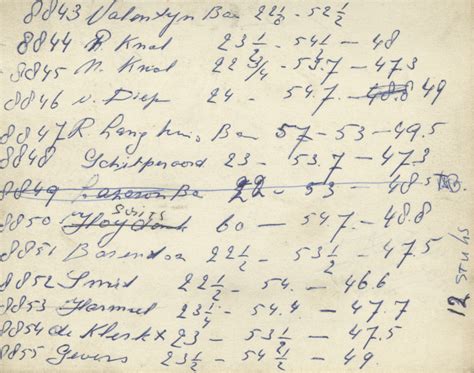 8843 Valentyn Ba 22 1/2 - 52 1/2
8844 R Knol 23 1/2 - 54 1/2 - 48
8845 M. Knol 22 3/4 - 53.7 - 473
8846 v. Diep 24 - 54.7. - 48.8 49
8847 R. Lang Ba 57 - 53 - 49.5
8848 Schilperoord 23 - 53.7 - 473
8849 Ba 22 - 53 - 48.5
8850 60 - 54.7. - 48.8
8851 Barendse 22 1/2 - 53 1/2 - 47.5
8852 Smid 22 1/2 - 54. - 46.6
8853 Harmsel 23 1/4 - 54.4. - 47.7
8854 de Klerk x 23 - 53 1/2 - 47.5
8855 Gevers 23 1/2 - 54 1/2 - 49.
12 STUKS